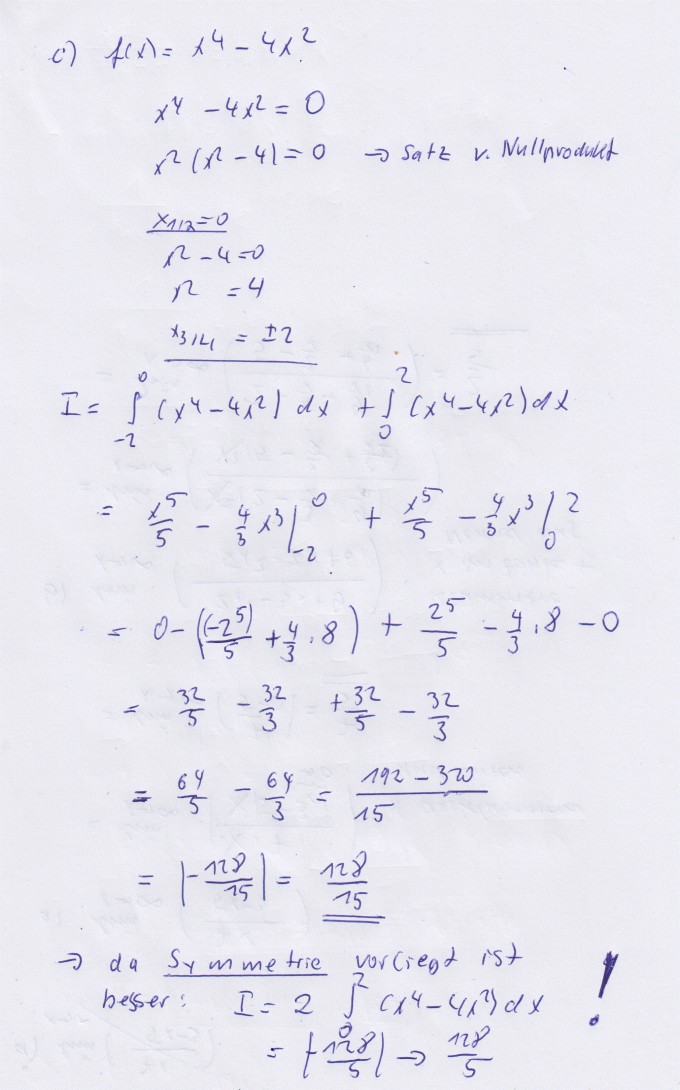 c) f(x) = x⁴ - 4x²
x⁴ - 4x² = 0
x² (x² - 4) = 0 → Satz v. Nullprodukt
x₁/₂ = 0
x² - 4 = 0
x² = 4
x₃/₄ = ±2
I = ∫₋₂⁰ (x⁴ - 4x²) dx + ∫₀² (x⁴ - 4x²) dx
= x⁵/5 - 4/3 x³ |₋₂⁰ + x⁵/5 - 4/3 x³ |₀²
= 0 - ((-2⁵)/5 + 4/3 · 8) + 2⁵/5 - 4/3 · 8 - 0
= 32/5 - 32/3 + 32/5 - 32/3
= 64/5 - 64/3 = (192 - 320)/15
= |-128/15| = 128/15
→ da Symmetrie vorliegt ist
besser: I = 2 ∫₀² (x⁴ - 4x²) dx !
= |-128/5| → 128/5